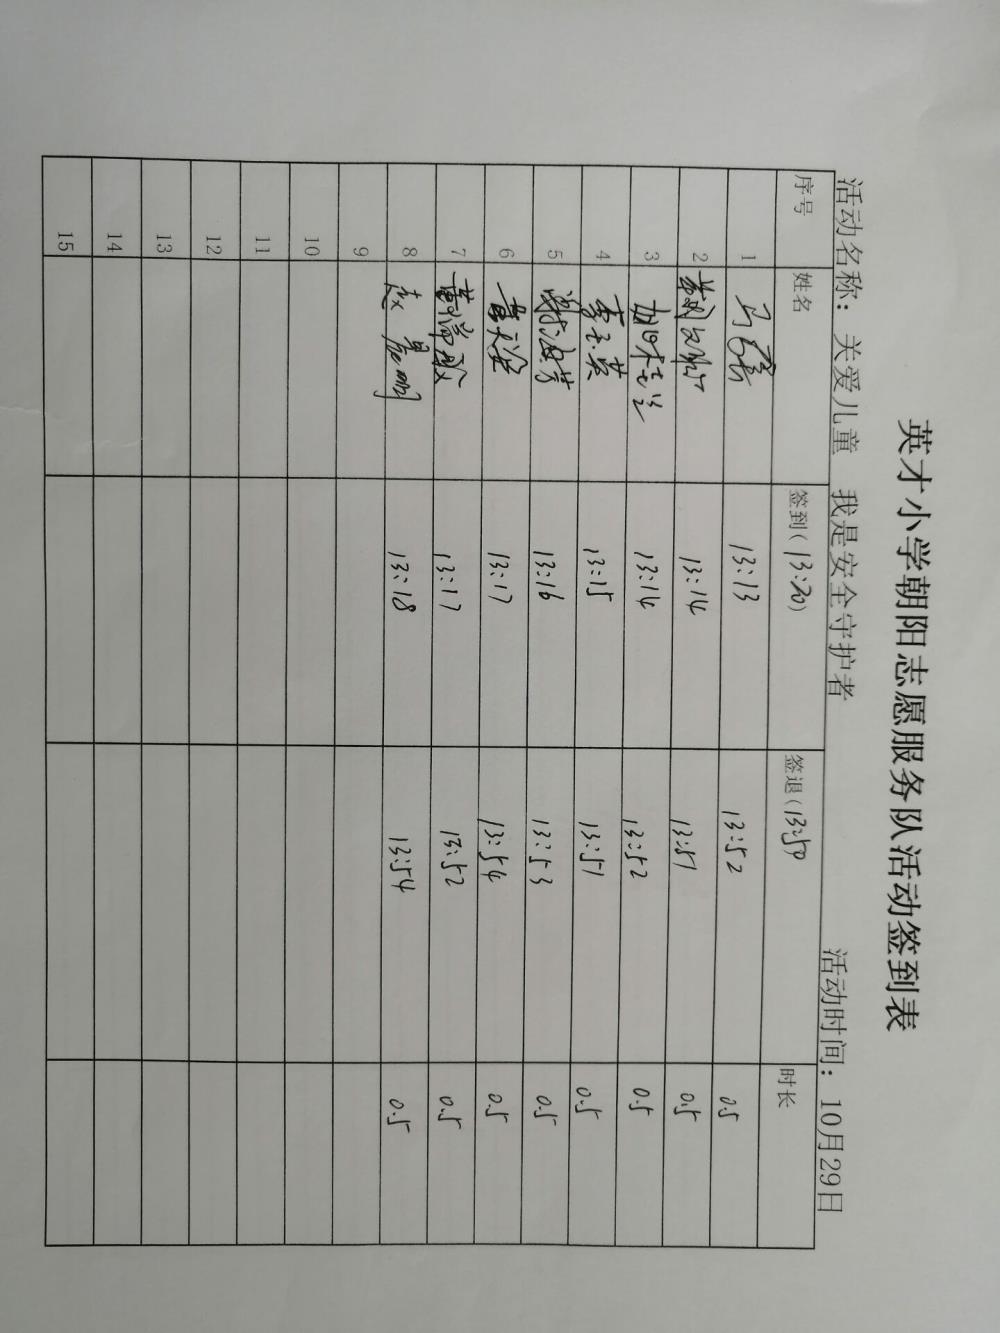 英才小学朝阳志愿服务队活动签到表
活动名称：关爱儿童 我是安全守护者 活动时间：10月29日
序号 姓名 签到(13:20) 签退(13:50 时长
1 13:13 13:52 0.5
2 13:14 13:51 0.5
3 13:14 13:52 0.5
4 李玉英 13:15 13:51 0.5
5 谢海芳 13:16 13:53 0.5
6 13:17 13:54 0.5
7 13:17 13:52 0.5
8 赵晨明 13:18 13:54 0.5
9
10
11
12
13
14
15